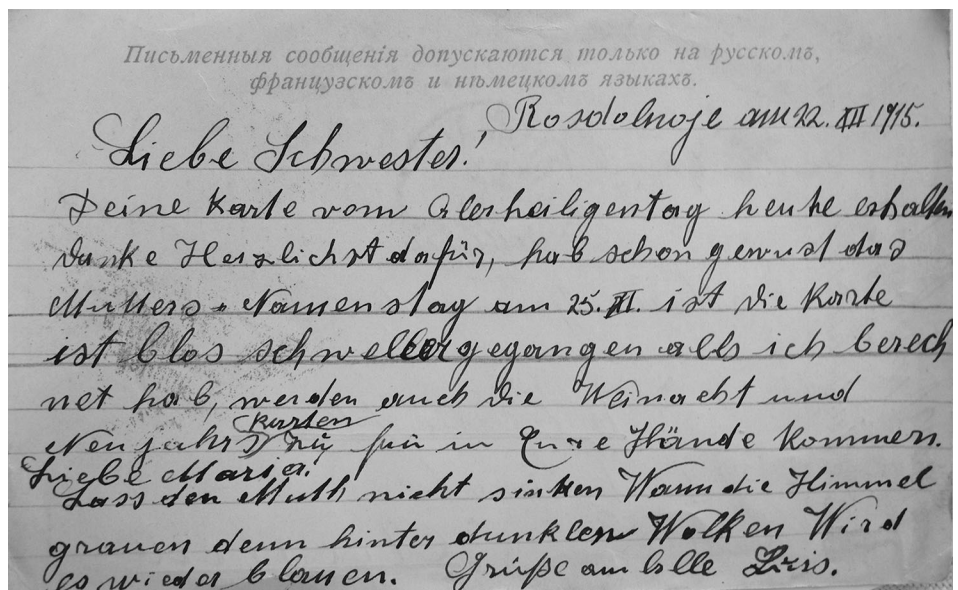 Письменныя сообщенія допускаются только на русскомъ,
французскомъ и нѣмецкомъ языкахъ.
Rosdolnoje am 22. XII 1915.
Liebe Schwester!
Deine Karte vom Alerheiligentag heute erhalten
danke Herzlichst dafür, hab schon gewust das
Mutters Namenstag am 25. XI. ist die Karte
ist blos schweller gegangen alls ich berech
net hab, werden auch die Weinacht und
Neujahrs Karten zu früh in Eure Hände kommen.
Liebe Maria!
Lass den Muth nicht sinken Wann die Himmel
grauen denn hinter dunklen Wolken Wird
es wieder blauen. Grüße am alle